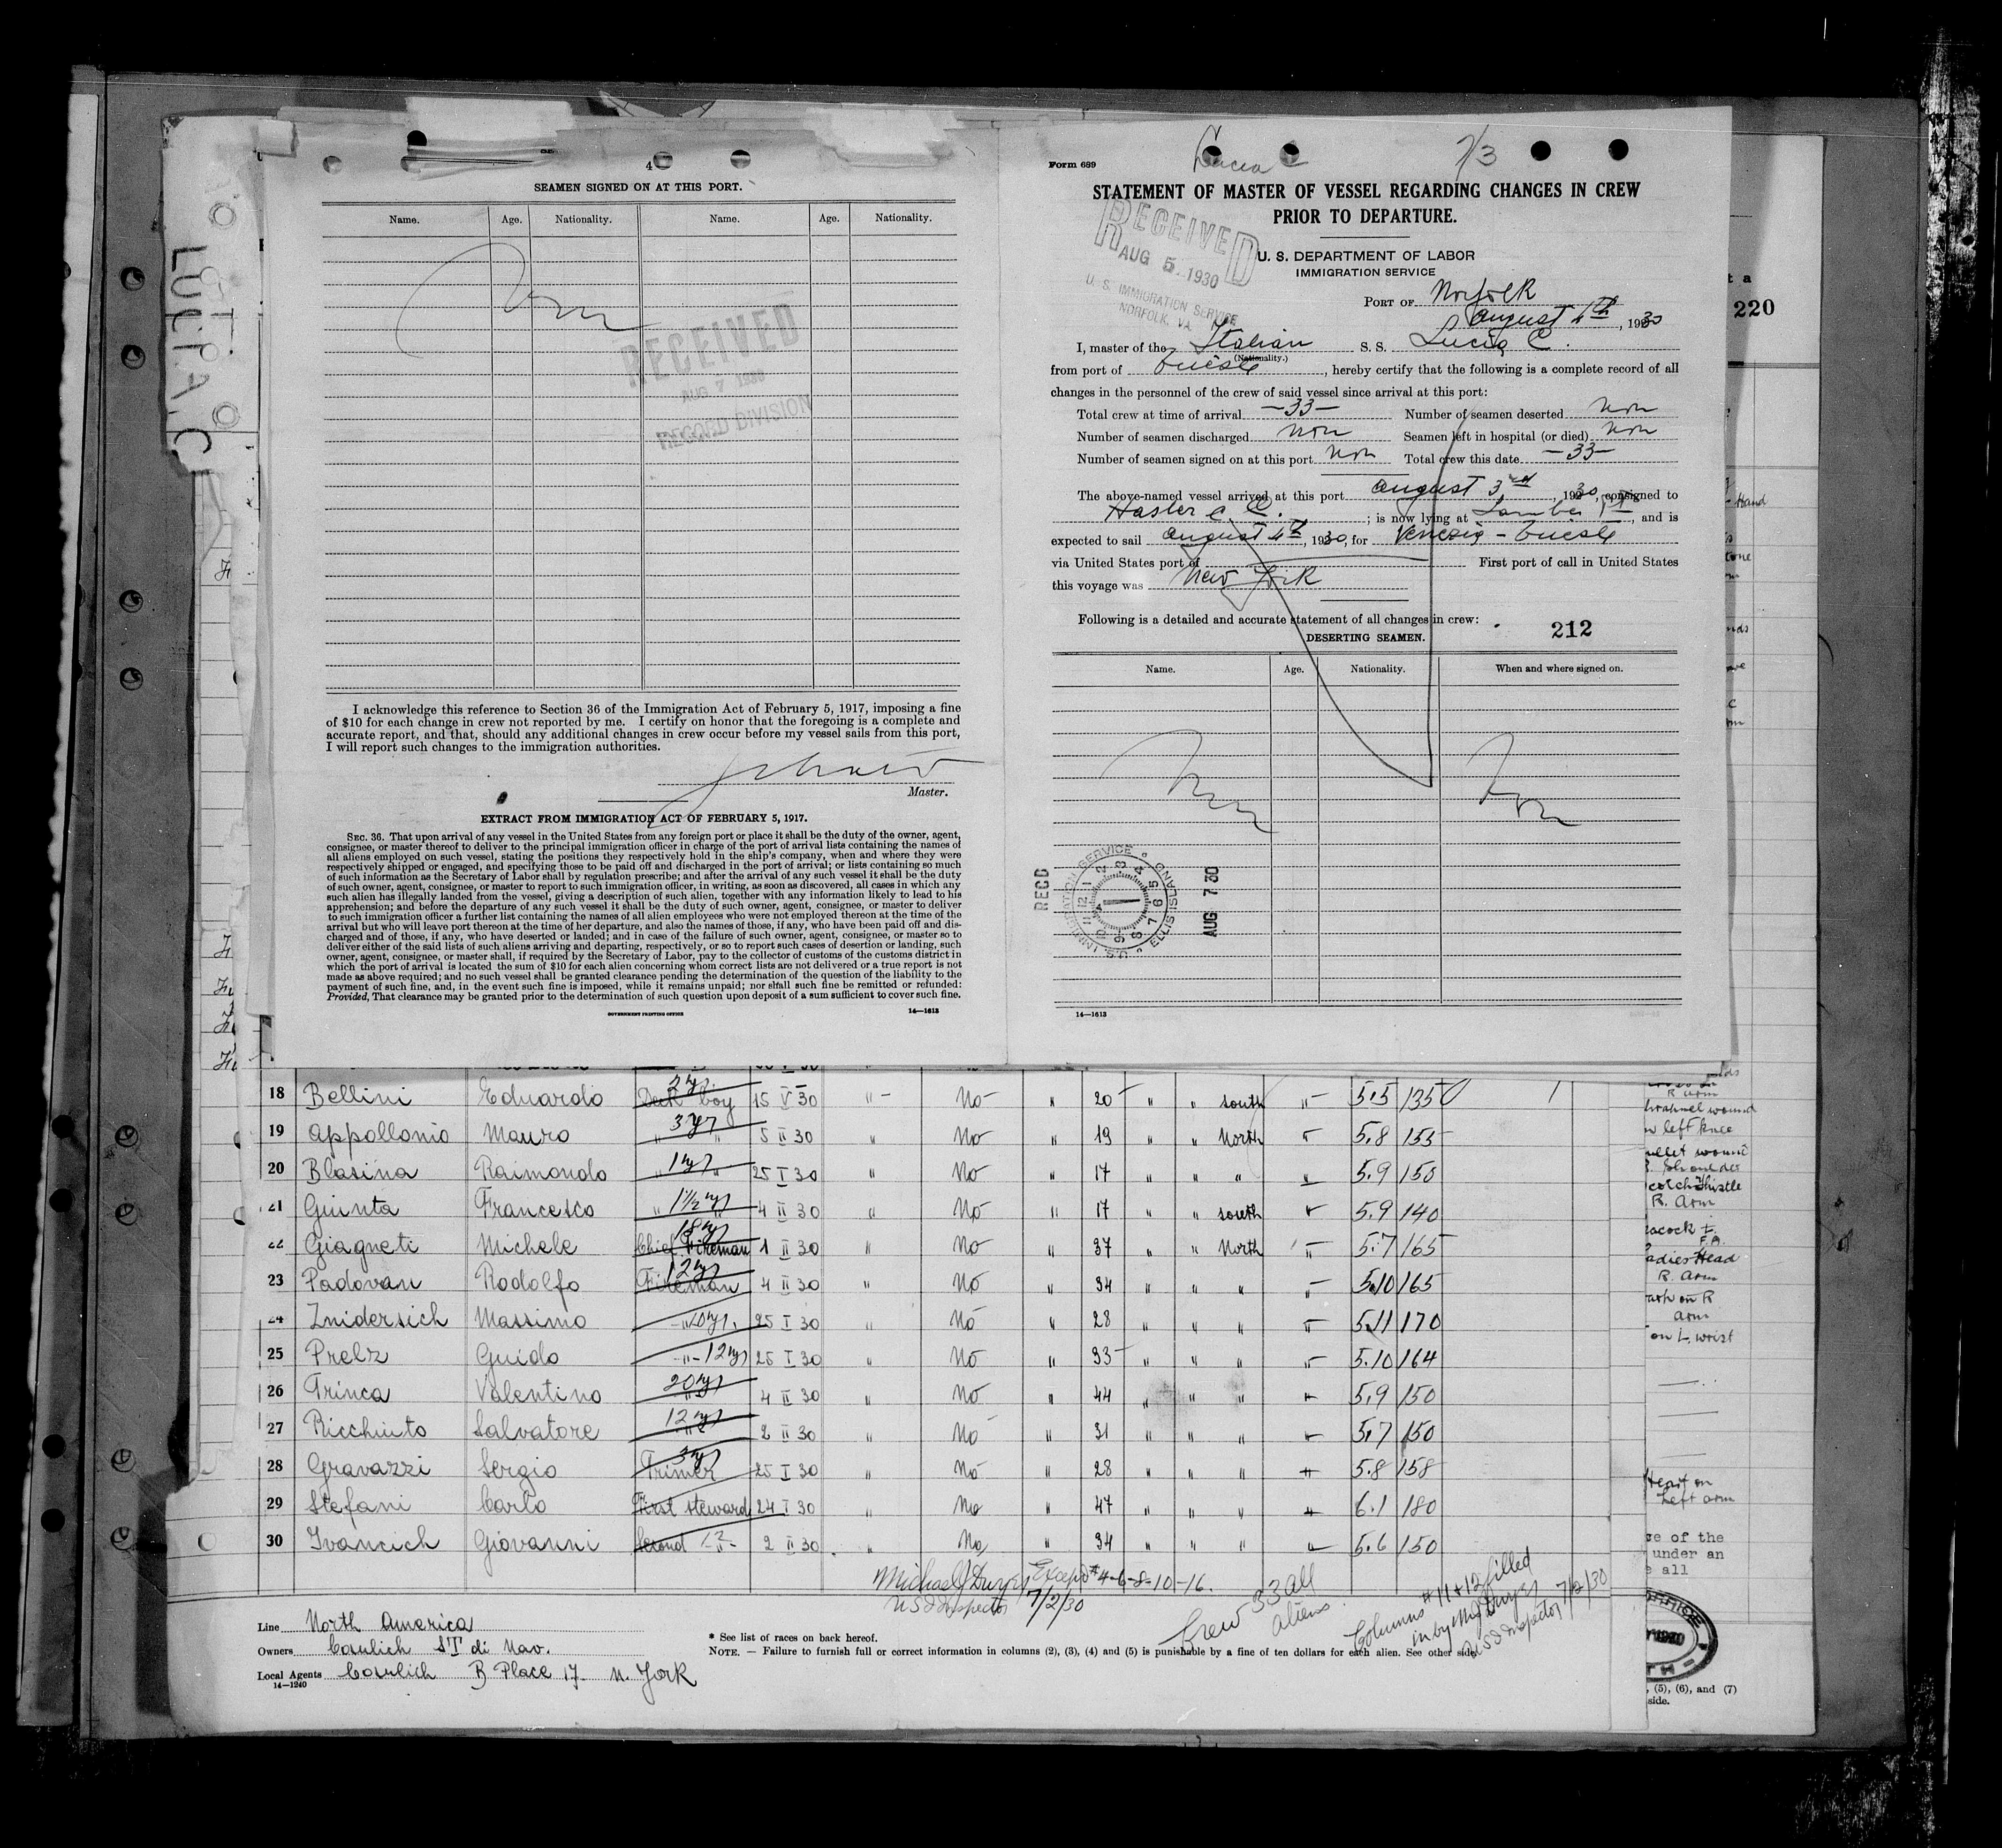 LUCIA. C
4
SEAMEN SIGNED ON AT THIS PORT.
Name. Age. Nationality. Name. Age. Nationality.
Non
RECEIVED
AUG 7 1930
RECORD DIVISION
I acknowledge this reference to Section 36 of the Immigration Act of February 5, 1917, imposing a fine
of $10 for each change in crew not reported by me. I certify on honor that the foregoing is a complete and
accurate report, and that, should any additional changes in crew occur before my vessel sails from this port,
I will report such changes to the immigration authorities.
Master.
EXTRACT FROM IMMIGRATION ACT OF FEBRUARY 5, 1917.
SEC. 36. That upon arrival of any vessel in the United States from any foreign port or place it shall be the duty of the owner, agent,
consignee, or master thereof to deliver to the principal immigration officer in charge of the port of arrival lists containing the names of
all aliens employed on such vessel, stating the positions they respectively hold in the ship's company, when and where they were
respectively shipped or engaged, and specifying those to be paid off and discharged in the port of arrival; or lists containing so much
of such information as the Secretary of Labor shall by regulation prescribe; and after the arrival of any such vessel it shall be the duty
of such owner, agent, consignee, or master to report to such immigration officer, in writing, as soon as discovered, all cases in which any
such alien has illegally landed from the vessel, giving a description of such alien, together with any information likely to lead to his
apprehension; and before the departure of any such vessel it shall be the duty of such owner, agent, consignee, or master to deliver
to such immigration officer a further list containing the names of all alien employees who were not employed thereon at the time of the
arrival but who will leave port thereon at the time of her departure, and also the names of those, if any, who have been paid off and dis-
charged and of those, if any, who have deserted or landed; and in case of the failure of such owner, agent, consignee, or master so to
deliver either of the said lists of such aliens arriving and departing, respectively, or so to report such cases of desertion or landing, such
owner, agent, consignee, or master shall, if required by the Secretary of Labor, pay to the collector of customs of the customs district in
which the port of arrival is located the sum of $10 for each alien concerning whom correct lists are not delivered or a true report is not
made as above required; and no such vessel shall be granted clearance pending the determination of the question of the liability to the
payment of such fine, and, in the event such fine is imposed, while it remains unpaid; nor shall such fine be remitted or refunded:
Provided, That clearance may be granted prior to the determination of such question upon deposit of a sum sufficient to cover such fine.
GOVERNMENT PRINTING OFFICE 14—1613
Form 689 Lucia C 7/3
STATEMENT OF MASTER OF VESSEL REGARDING CHANGES IN CREW
PRIOR TO DEPARTURE.
RECEIVED
AUG 5 1930
U. S. IMMIGRATION SERVICE
NORFOLK, VA
U. S. DEPARTMENT OF LABOR
IMMIGRATION SERVICE
PORT OF Norfolk
August 4th, 1930
I, master of the Italian S. S. Lucia C.
(Nationality.)
from port of Trieste, hereby certify that the following is a complete record of all
changes in the personnel of the crew of said vessel since arrival at this port:
Total crew at time of arrival —33— Number of seamen deserted non
Number of seamen discharged non Seamen left in hospital (or died) non
Number of seamen signed on at this port non Total crew this date —33—
The above-named vessel arrived at this port August 3rd, 1930, consigned to
Hasler & C.; is now lying at Lamber Pt, and is
expected to sail August 4th, 1930, for Venezia - Trieste
via United States port of First port of call in United States
this voyage was New York
Following is a detailed and accurate statement of all changes in crew:
DESERTING SEAMEN. 212
Name. Age. Nationality. When and where signed on.
Non Non
RECD
U.S. IMMIGRATION SERVICE ELLIS ISLAND
AUG 7 30
14—1613
t a
220
Hand
18 Bellini Eduardo 2 ys Deck boy 15 V 30 " No " 20 " " south " 5.5 135
19 Appollonio Mauro 3 ys " 5 II 30 " No " 19 " " North " 5.8 155
20 Blasina Raimondo 1 ys " 25 I 30 " No " 17 " " " " 5.9 150
21 Giunta Francesco 1½ ys " 4 II 30 " No " 17 " " south " 5.9 140
22 Giagneti Michele 18 ys Chief Fireman 1 II 30 " No " 37 " " North " 5.7 165
23 Padovan Rodolfo 12 ys Fireman 4 II 30 " No " 34 " " " " 5.10 165
24 Znidersich Massimo " 10 ys 25 I 30 " No " 28 " " " " 5.11 170
25 Prelz Guido " 12 ys 25 I 30 " No " 33 " " " " 5.10 164
26 Trinca Valentino 20 ys " 4 II 30 " No " 44 " " " " 5.9 150
27 Ricchiuto Salvatore 12 ys " 2 II 30 " No " 31 " " " " 5.7 150
28 Gravazzi Sergio 3 ys Trimer 25 I 30 " No " 28 " " " " 5.8 158
29 Stefani Carlo First steward 24 I 30 " No " 47 " " " " 6.1 180
30 Ivancich Giovanni Second " 2 II 30 " No " 34 " " " " 5.6 150
R arm
shrapnel wound
left knee
bullet wound
Shoulder
Thistle
R. Arm
F.A.
Ladies Head
R. Arm
on R
Arm
on L wrist
Heart on
Left arm
ce of the
under an
e all
Michael J Dwyer Except # 4-6-8-10-16.
US I Inspector 7/2/30
Crew 33 all
aliens
Columns # 11+12 filled
in by M J Dwyer
US I Inspector 7/2/30
Line North America
Owners Cosulich ST di Nav.
Local Agents Cosulich B Place 17 N. York
14—1240
* See list of races on back hereof.
NOTE. — Failure to furnish full or correct information in columns (2), (3), (4) and (5) is punishable by a fine of ten dollars for each alien. See other side.
, (5), (6), and (7)
side.